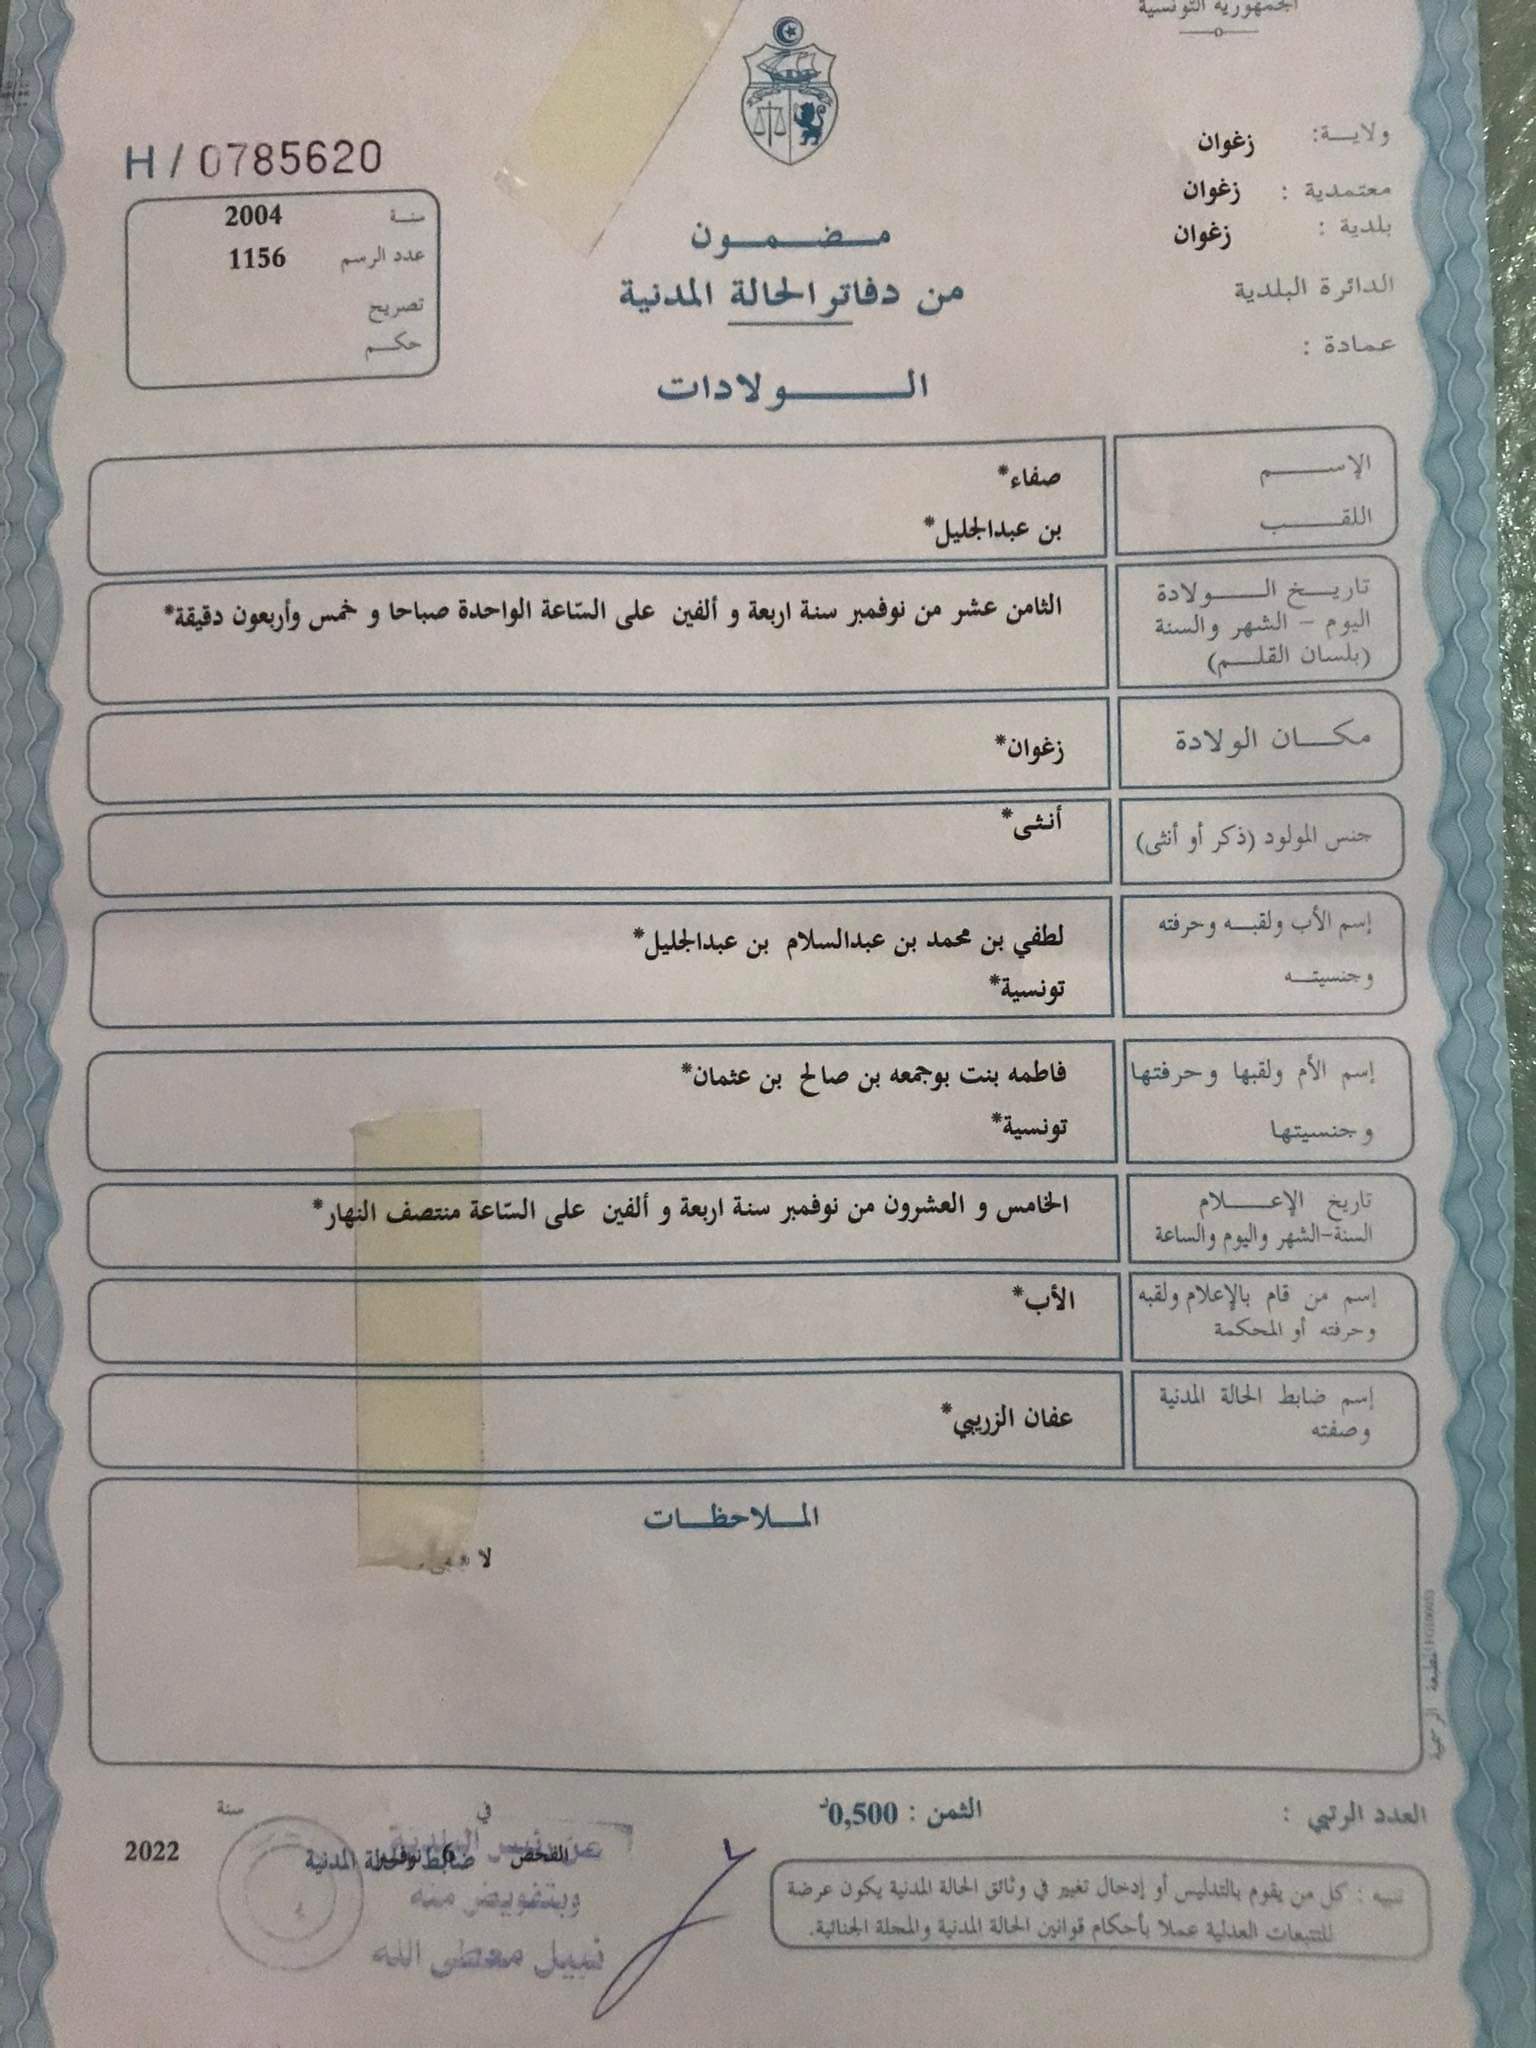 الجمهورية التونسية
ولاية: زغوان
معتمدية : زغوان
بلدية : زغوان
الدائرة البلدية
عمادة :
H / 0785620
سنة 2004
عدد الرسم 1156
تصريح
حكم
مضمون
من دفاتر الحالة المدنية
الولادات
الإسم صفاء*
اللقب بن عبدالجليل*
تاريخ الولادة
اليوم - الشهر والسنة
(بلسان القلم)
الثامن عشر من نوفمبر سنة اربعة و ألفين على السّاعة الواحدة صباحا و خمس وأربعون دقيقة*
مكان الولادة زغوان*
جنس المولود (ذكر أو أنثى) أنثى*
إسم الأب ولقبه وحرفته
وجنسيته
لطفي بن محمد بن عبدالسلام بن عبدالجليل*
تونسية*
إسم الأم ولقبها وحرفتها
وجنسيتها
فاطمه بنت بوجمعه بن صالح بن عثمان*
تونسية*
تاريخ الإعلام
السنة-الشهر واليوم والساعة
الخامس و العشرون من نوفمبر سنة اربعة و ألفين على السّاعة منتصف النهار*
إسم من قام بالإعلام ولقبه
وحرفته أو المحكمة
الأب*
إسم ضابط الحالة المدنية
وصفته
عفان الزريبي*
الملاحظات
لا
المطبعة الرسمية
العدد الرتبي :
الثمن : 0,500د
في
سنة
الفحص 6 نوفمبر 2022
ضابط الحالة المدنية
عن رئيس البلدية
وبتفويض منه
نبيل معطى الله
تنبيه : كل من يقوم بالتدليس أو إدخال تغيير في وثائق الحالة المدنية يكون عرضة
للتتبعات العدلية عملا بأحكام قوانين الحالة المدنية والمجلة الجنائية.